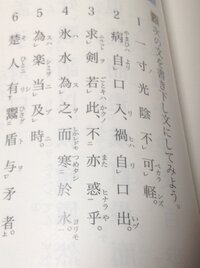 次の文を書き下し文にしてみよう。
1 一寸光陰不可軽。
2 病自口入、禍自口出。
3 求剣若此、不亦惑乎。
4 氷水為之、而寒於水。
5 為楽当及時。
6 楚人有鬻盾与矛者。